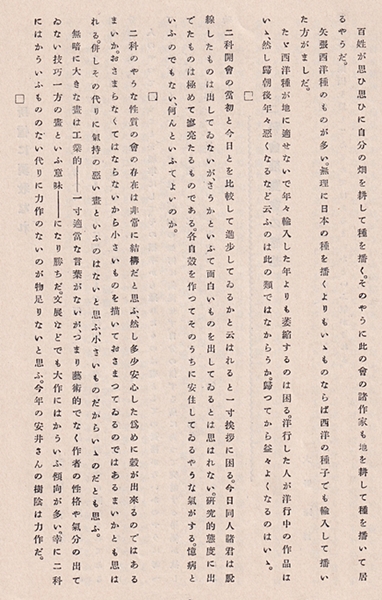 百姓が思ひ思ひに自分の畑を耕して種を播く。そのやうに此の會の諸作家も地を耕して種を播いて居
るやうだ。
矢張西洋種のものが多い。無理に日本の種を播くよりもいゝものならば西洋の種子でも輸入して播い
た方がましだ。
たゞ西洋種が地に適せないで年々輸入した年よりも萎縮するのは困る。洋行した人が洋行中の作品は
いゝ然し歸朝後年々悪くなるなど云ふのは此の類ではなからうか。歸つてから益々よくなるのはいゝ。
□
二科開會の當初と今日とを比較して進歩してゐるかと云はれると一寸挨拶に困る。今日同人諸君は脱
線したものは出してゐないが、さうかといふて面白いものを出してゐるとは思はれない。研究的態度に出
でたものは極めて寥亮たるものである。各自殻を作つてそのうちに安住してゐるやうな氣がする。臆病と
いふのでもない、何んといふてよいのか。
□
二科のやうな性質の會の存在は非常に結構だと思ふ、然し多少安心した爲めに殻が出來るのではある
まいか。おさまらなくてはならないから小さいものを描いておさまつてゐるのではあるまいかとも思は
れる。併しその代りに氣持の悪い畫といふのはないと思ふ、小さいものだからいゝのだとも思ふ。
無暗に大きな畫は工業的――一寸適當な言葉がないがつまり藝術的でなく作者の性格や氣分の出て
ゐない技巧一方の畫といふ意味――になり勝ちだ。文展などでも大作にはかういふ傾向が多い。幸に二科
にはかういふもののない代りに力作のないのが物足りないと思ふ。今年の安井さんの樹陰は力作だ。
□